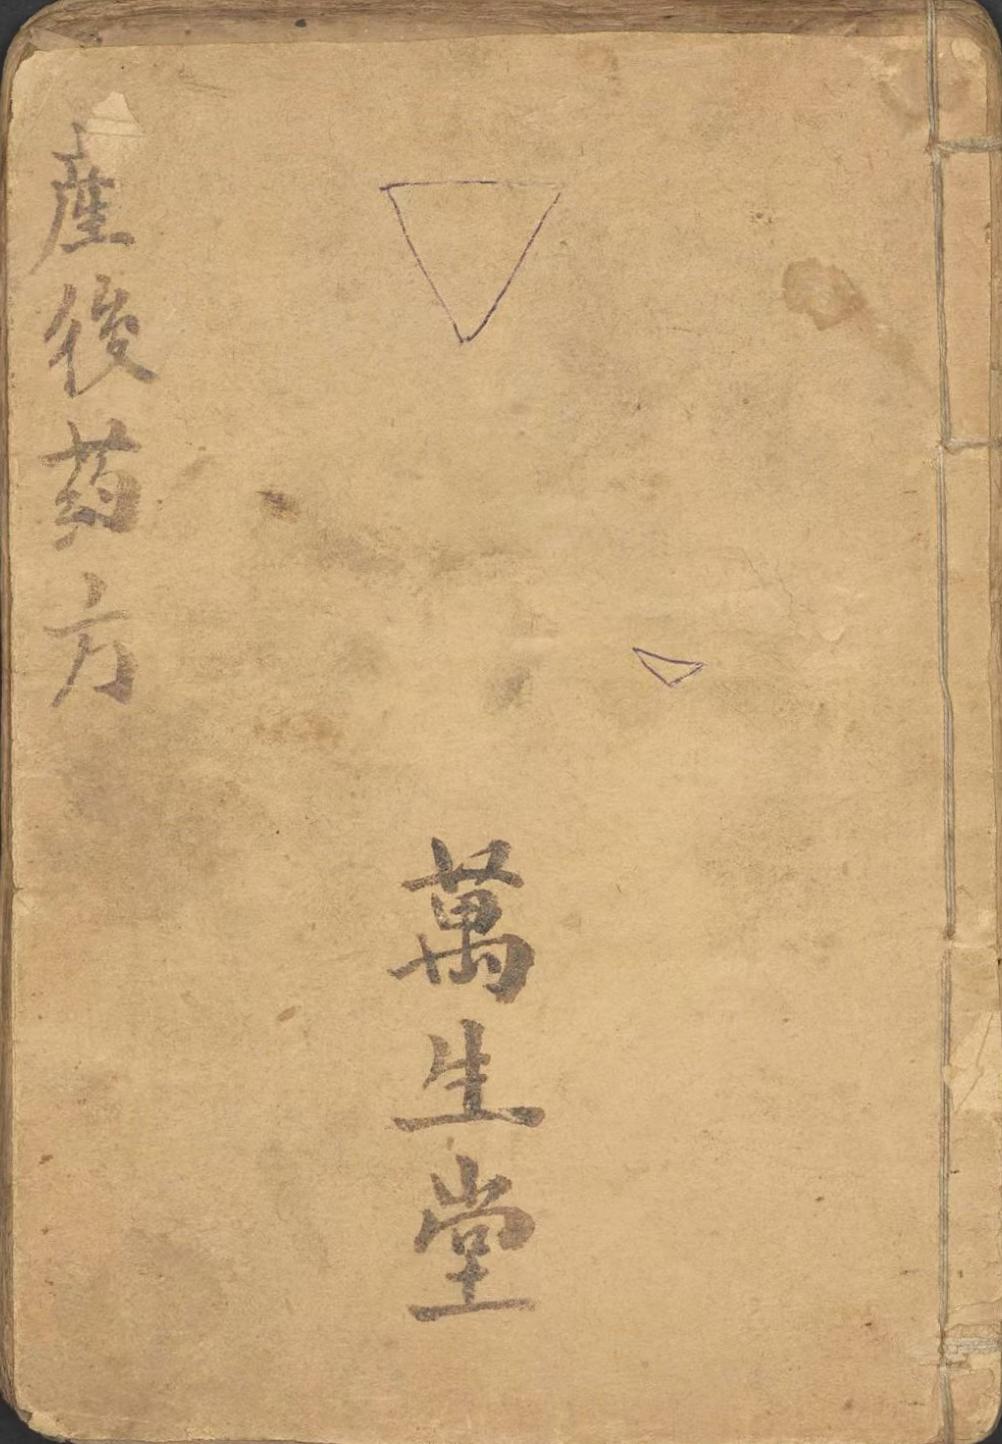 產後药方
萬生堂